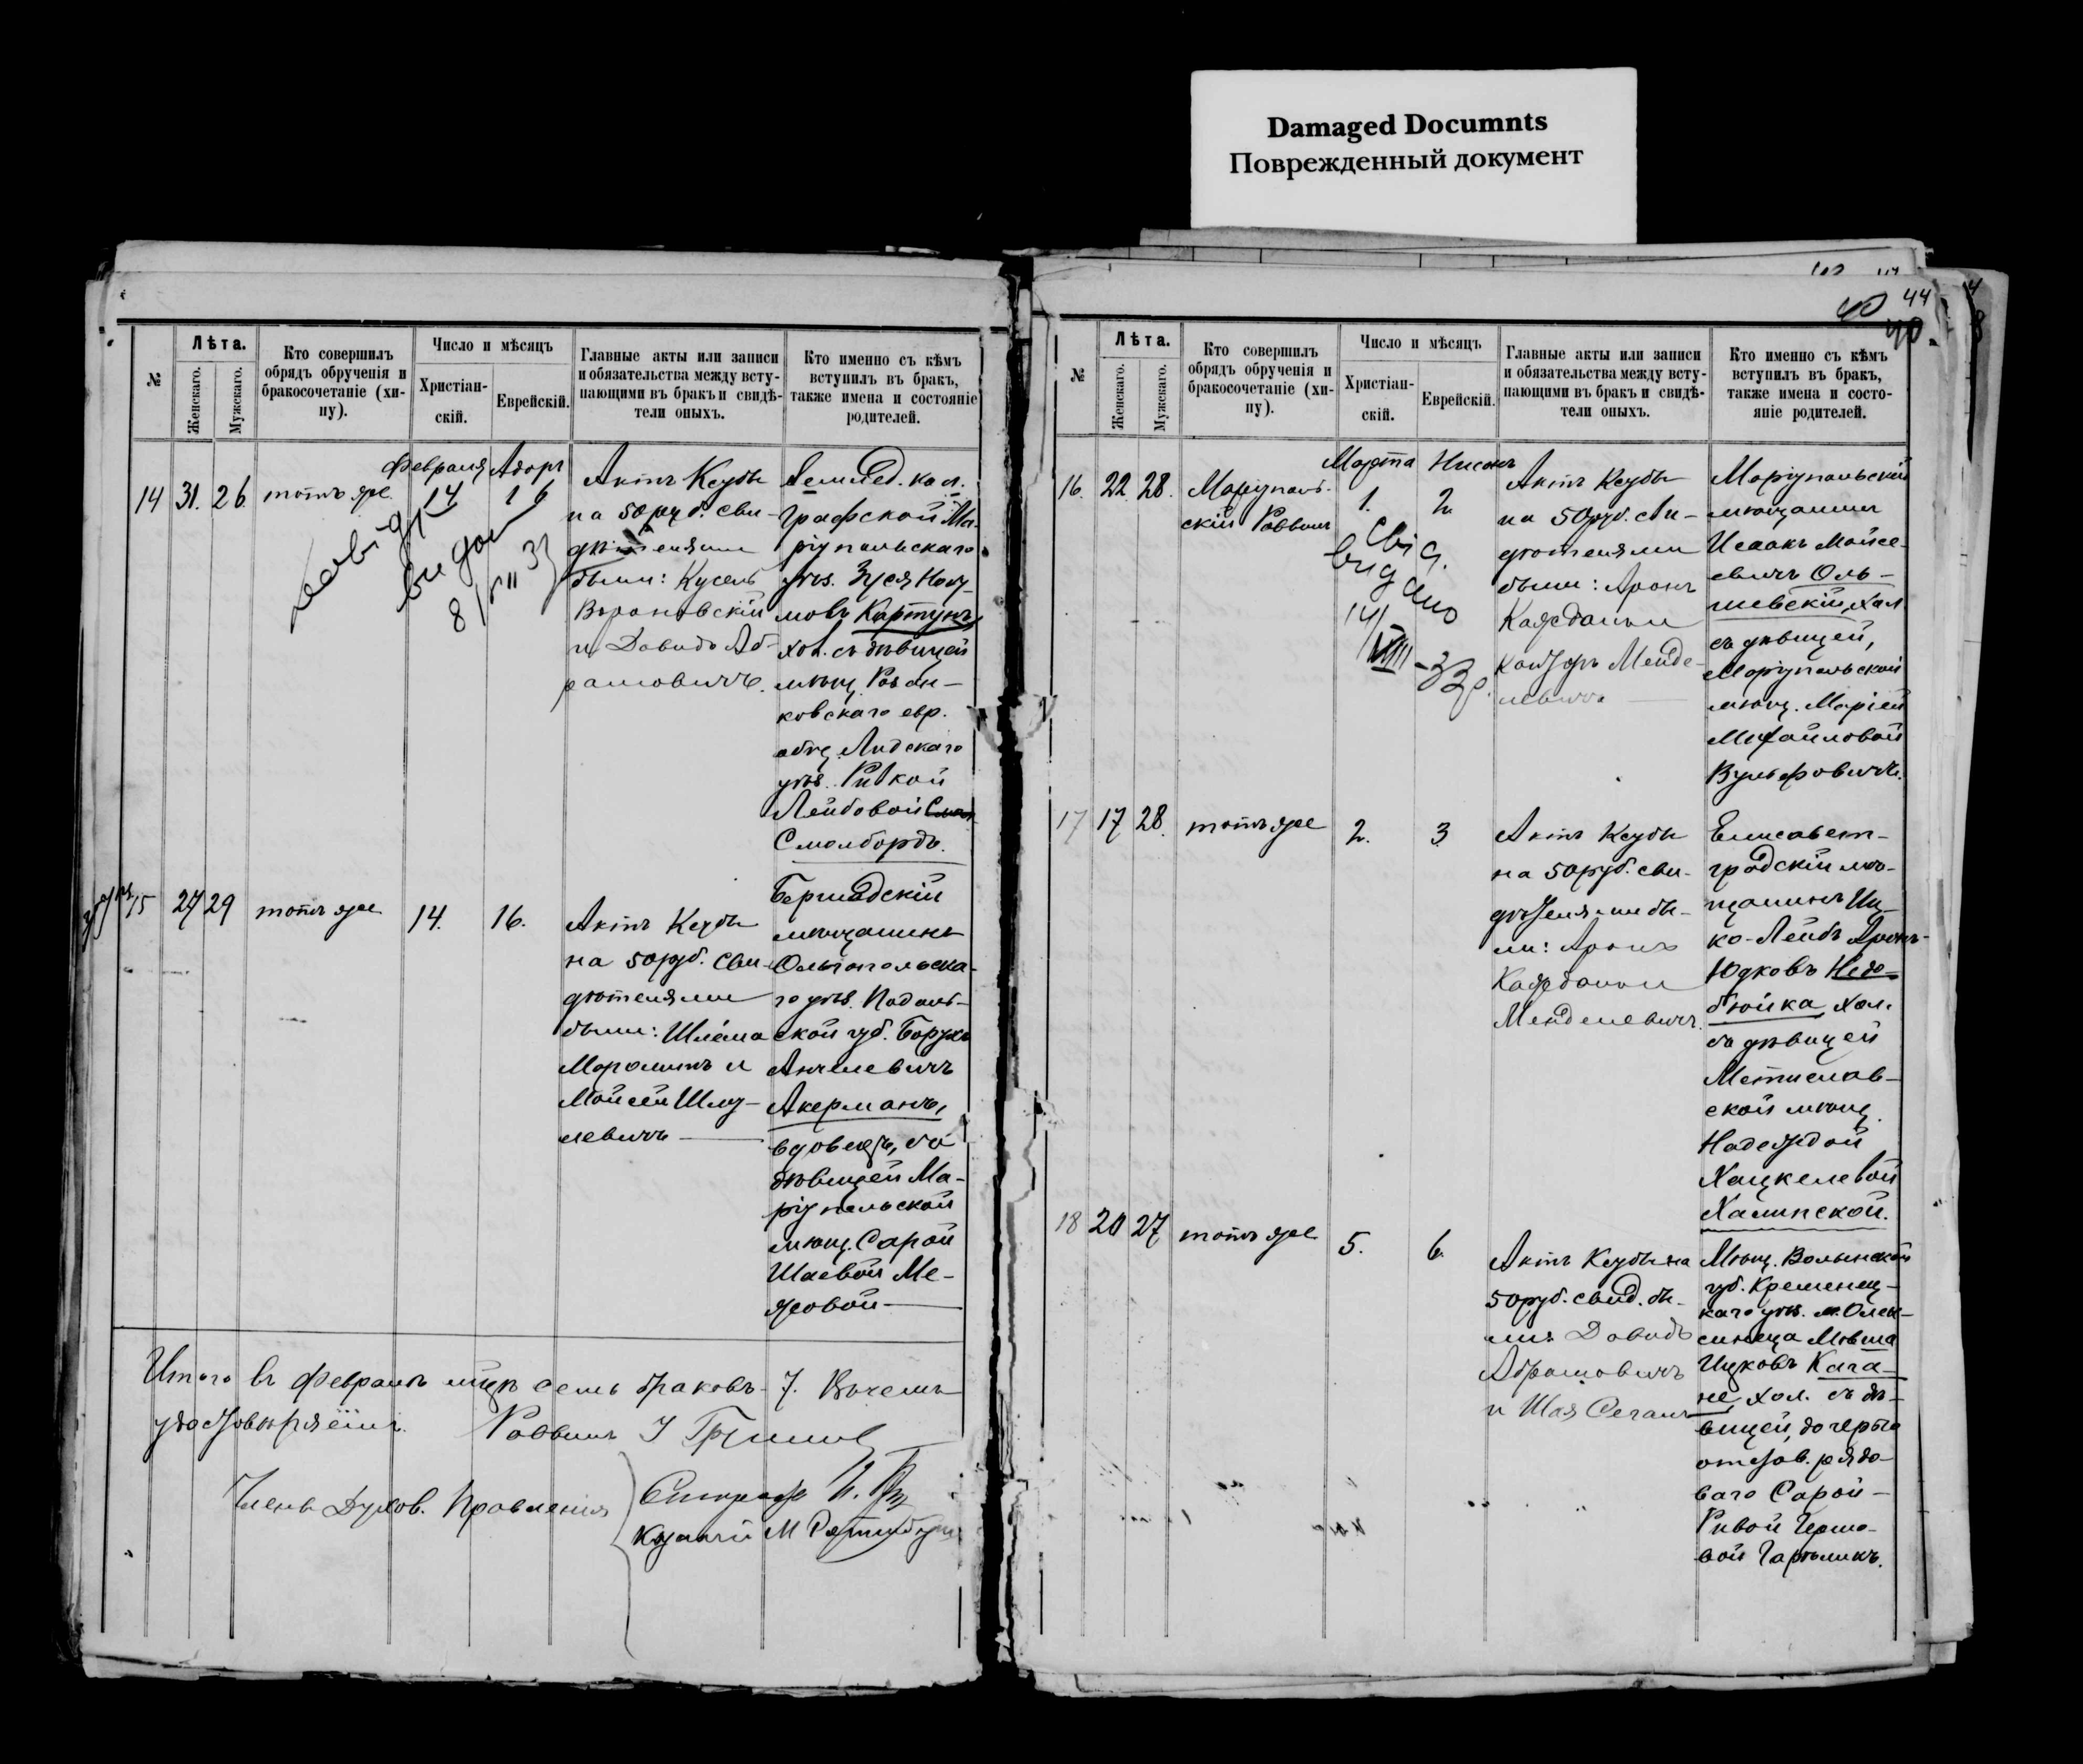 Damaged Documnts
Поврежденный документ
44
40
40
№
Лѣта.
Женскаго.
Мужскаго.
Кто совершилъ
обрядъ обрученія и
бракосочетаніе (хи-
пу).
Число и мѣсяцъ
Христіан-
скій.
Еврейскій.
Главные акты или записи
и обязательства между всту-
пающими въ бракъ и свидѣ-
тели оныхъ.
Кто именно съ кѣмъ
вступилъ въ бракъ,
также имена и состояніе
родителей.
Февраля Адоръ
14 31. 26 тотъ же 14 16
видан
8/VII 33
Актъ Ксубы
на 50 руб. сви-
дѣтелями
были: Кусель
Вороновскій
и Давидъ Аб-
рамовичъ.
Землед. кол.
Графской Ма-
ріупольскаго
уѣз. Зуся Нову-
мовъ Картунъ,
хол. съ дѣвицей
мѣщ. Ра
ковскаго евр.
общ. Лидскаго
уѣз. Ривкой
Лейбовой
Смолбордъ.
15 27 29 тотъ же 14. 16.
Актъ Ксубы
на 50 руб. сви-
дѣтелями
были: Шлёма
Марголинъ и
Мойсей Шму-
левичъ
Бершадскій
мѣщанинъ
Ольгопольска-
го уѣз. Подоль-
ской губ. Борухъ
Анчелевичъ
Акерманъ,
вдовецъ, съ
дѣвицей Ма-
ріупольской
мѣщ. Сарой
Шаевой Ме-
жовой
Итого въ Февралѣ мцѣ семь браковъ 7. Въ чемъ
удостовѣряемъ. Раввинъ
Члены Духов. Правленія
Казначей М
№
Лѣта.
Женскаго.
Мужскаго.
Кто совершилъ
обрядъ обрученія и
бракосочетаніе (хи-
пу).
Число и мѣсяцъ
Христіан-
скій.
Еврейскій.
Главные акты или записи
и обязательства между всту-
пающими въ бракъ и свидѣ-
тели оныхъ.
Кто именно съ кѣмъ
вступилъ въ бракъ,
также имена и состо-
яніе родителей.
Марта Нисонъ
16. 22. 28. Маріуполь-
скій Раввинъ
1. 2.
Свід.
видано
14/VIII -33р.
Актъ Ксубы
на 50 руб. сви-
дѣтелями
были: Аронъ
Кажданъ и
Менде-
левичъ
Маріупольскій
мѣщанинъ
Исаакъ Мойсе-
евичъ Оль-
шевскій, хол.
съ дѣвицей,
Маріупольской
мѣщ. Маріей
Михайловой
Вульфовичъ.
17 17 28. тотъ же 2. 3
Актъ Ксубы
на 50 руб. сви-
дѣтелями бы-
ли: Аронъ
Кажданъ и
Менделевичъ.
Елисавет-
градскій мѣ-
щанинъ Иц-
ко-Лейбъ Аронъ-
Юдковъ Недо-
бойка, хол.
съ дѣвицей
Мстислав-
ской мѣщ.
Надеждой
Хацкелевой
Халипской.
18 20 27 тотъ же 5. 6.
Актъ Ксубы на
50 руб. свид. бы-
ли: Давидъ
Абрамовичъ
и Шая Сегалъ
Мѣщ. Волынской
губ. Кременец-
каго уѣз. м. Олек-
синеца Мовша
Ицковъ Кага-
не, хол. съ дѣ-
вицей, дочерью
отстав. рядо-
ваго Сарой-
Ривой Гершо-
вой